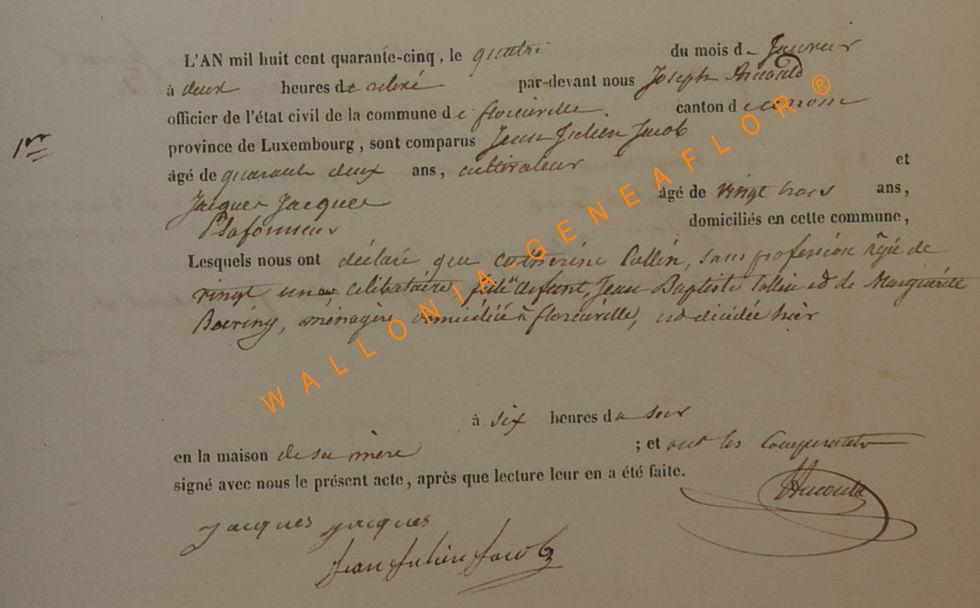 L'AN mil huit cent quarante-cinq, le quatre du mois de Janvier
à deux heures de relevé par-devant nous Joseph Arcould
officier de l'état civil de la commune de florenville canton de
1er
province de Luxembourg, sont comparus Jean Julien Jacob
âgé de quarante deux ans, cultivateur et
Jacques Jacques âgé de vingt trois ans,
Plafonneur domiciliés en cette commune,
Lesquels nous ont déclaré que Catherine Collin, sans profession âgée de
vingt un ans celibataire, fille de defunt Jean Baptiste Collin et de Marguerite
ménagère, domiciliée à florenville, est décédée hier
à six heures du soir
en la maison de sa mère ; et ont les Comparants
signé avec nous le présent acte, après que lecture leur en a été faite.
jacques jacques
Jean Julien Jacob
WALLONIA-GENEAFLOR®